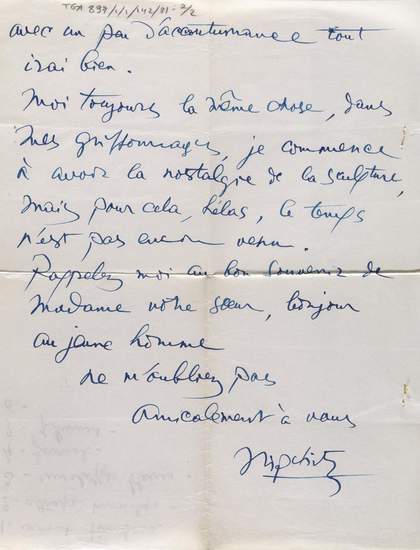 TGA 897/1/1/142/81-2/2
avec un peu d'accoutumance tout
irai bien.
Moi toujours la même chose, dans
mes griffonnages, je commence
à avoir la nostalgie de la sculpture,
mais pour cela, hélas, le temps
n'est pas encore venu.
Rappelez moi au bon souvenir de
Madame votre sœur, bonjour
au jeune homme
ne m'oubliez pas
Amicalement à vous